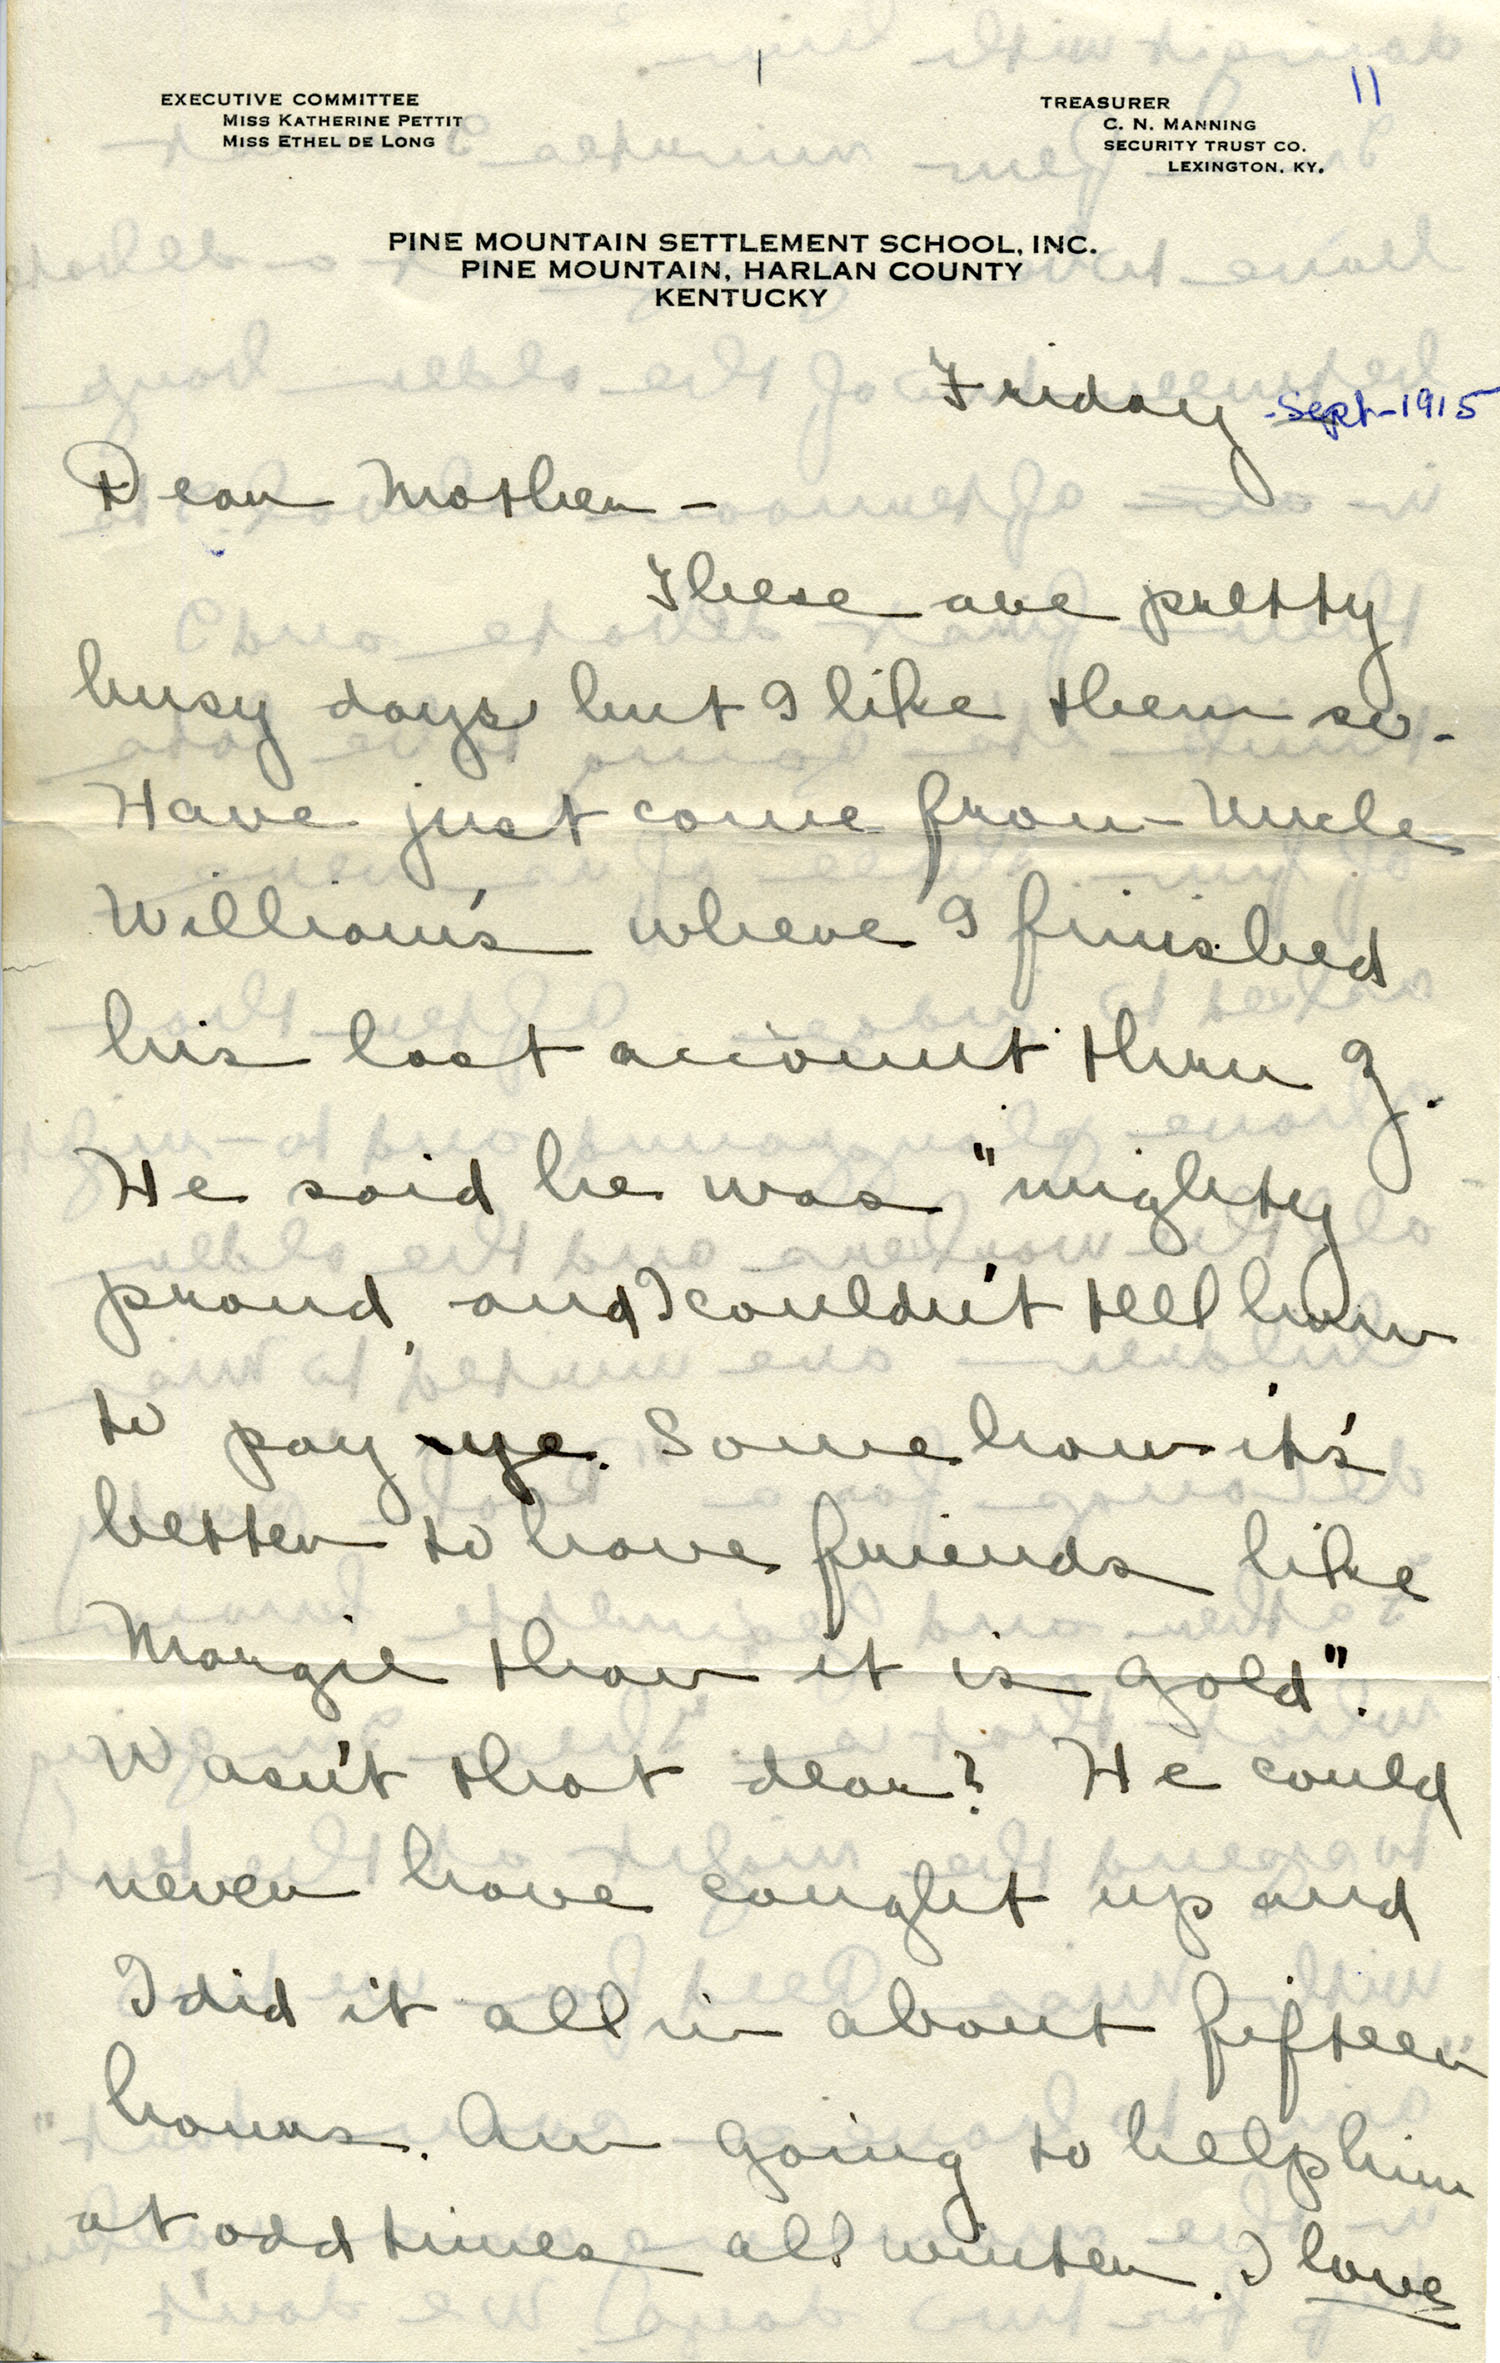 1
11
EXECUTIVE COMMITTEE
MISS KATHERINE PETTIT
MISS ETHEL DE LONG
TREASURER
C. N. MANNING
SECURITY TRUST CO.
LEXINGTON, KY.
PINE MOUNTAIN SETTLEMENT SCHOOL, INC.
PINE MOUNTAIN, HARLAN COUNTY
KENTUCKY
Friday Sept-1915
Dear Mother -
These are pretty
busy days but I like them so.
Have just come from Uncle
William's where I finished
his last account thru J.
He said he was "mighty
proud, and I couldn't tell how
to pay ye. Somehow it's
better to have friends like
Margie than it is gold".
Wasn't that dear? He could
never have caught up and
I did it all in about fifteen
hours. Am going to help him
at odd times all winter. I love